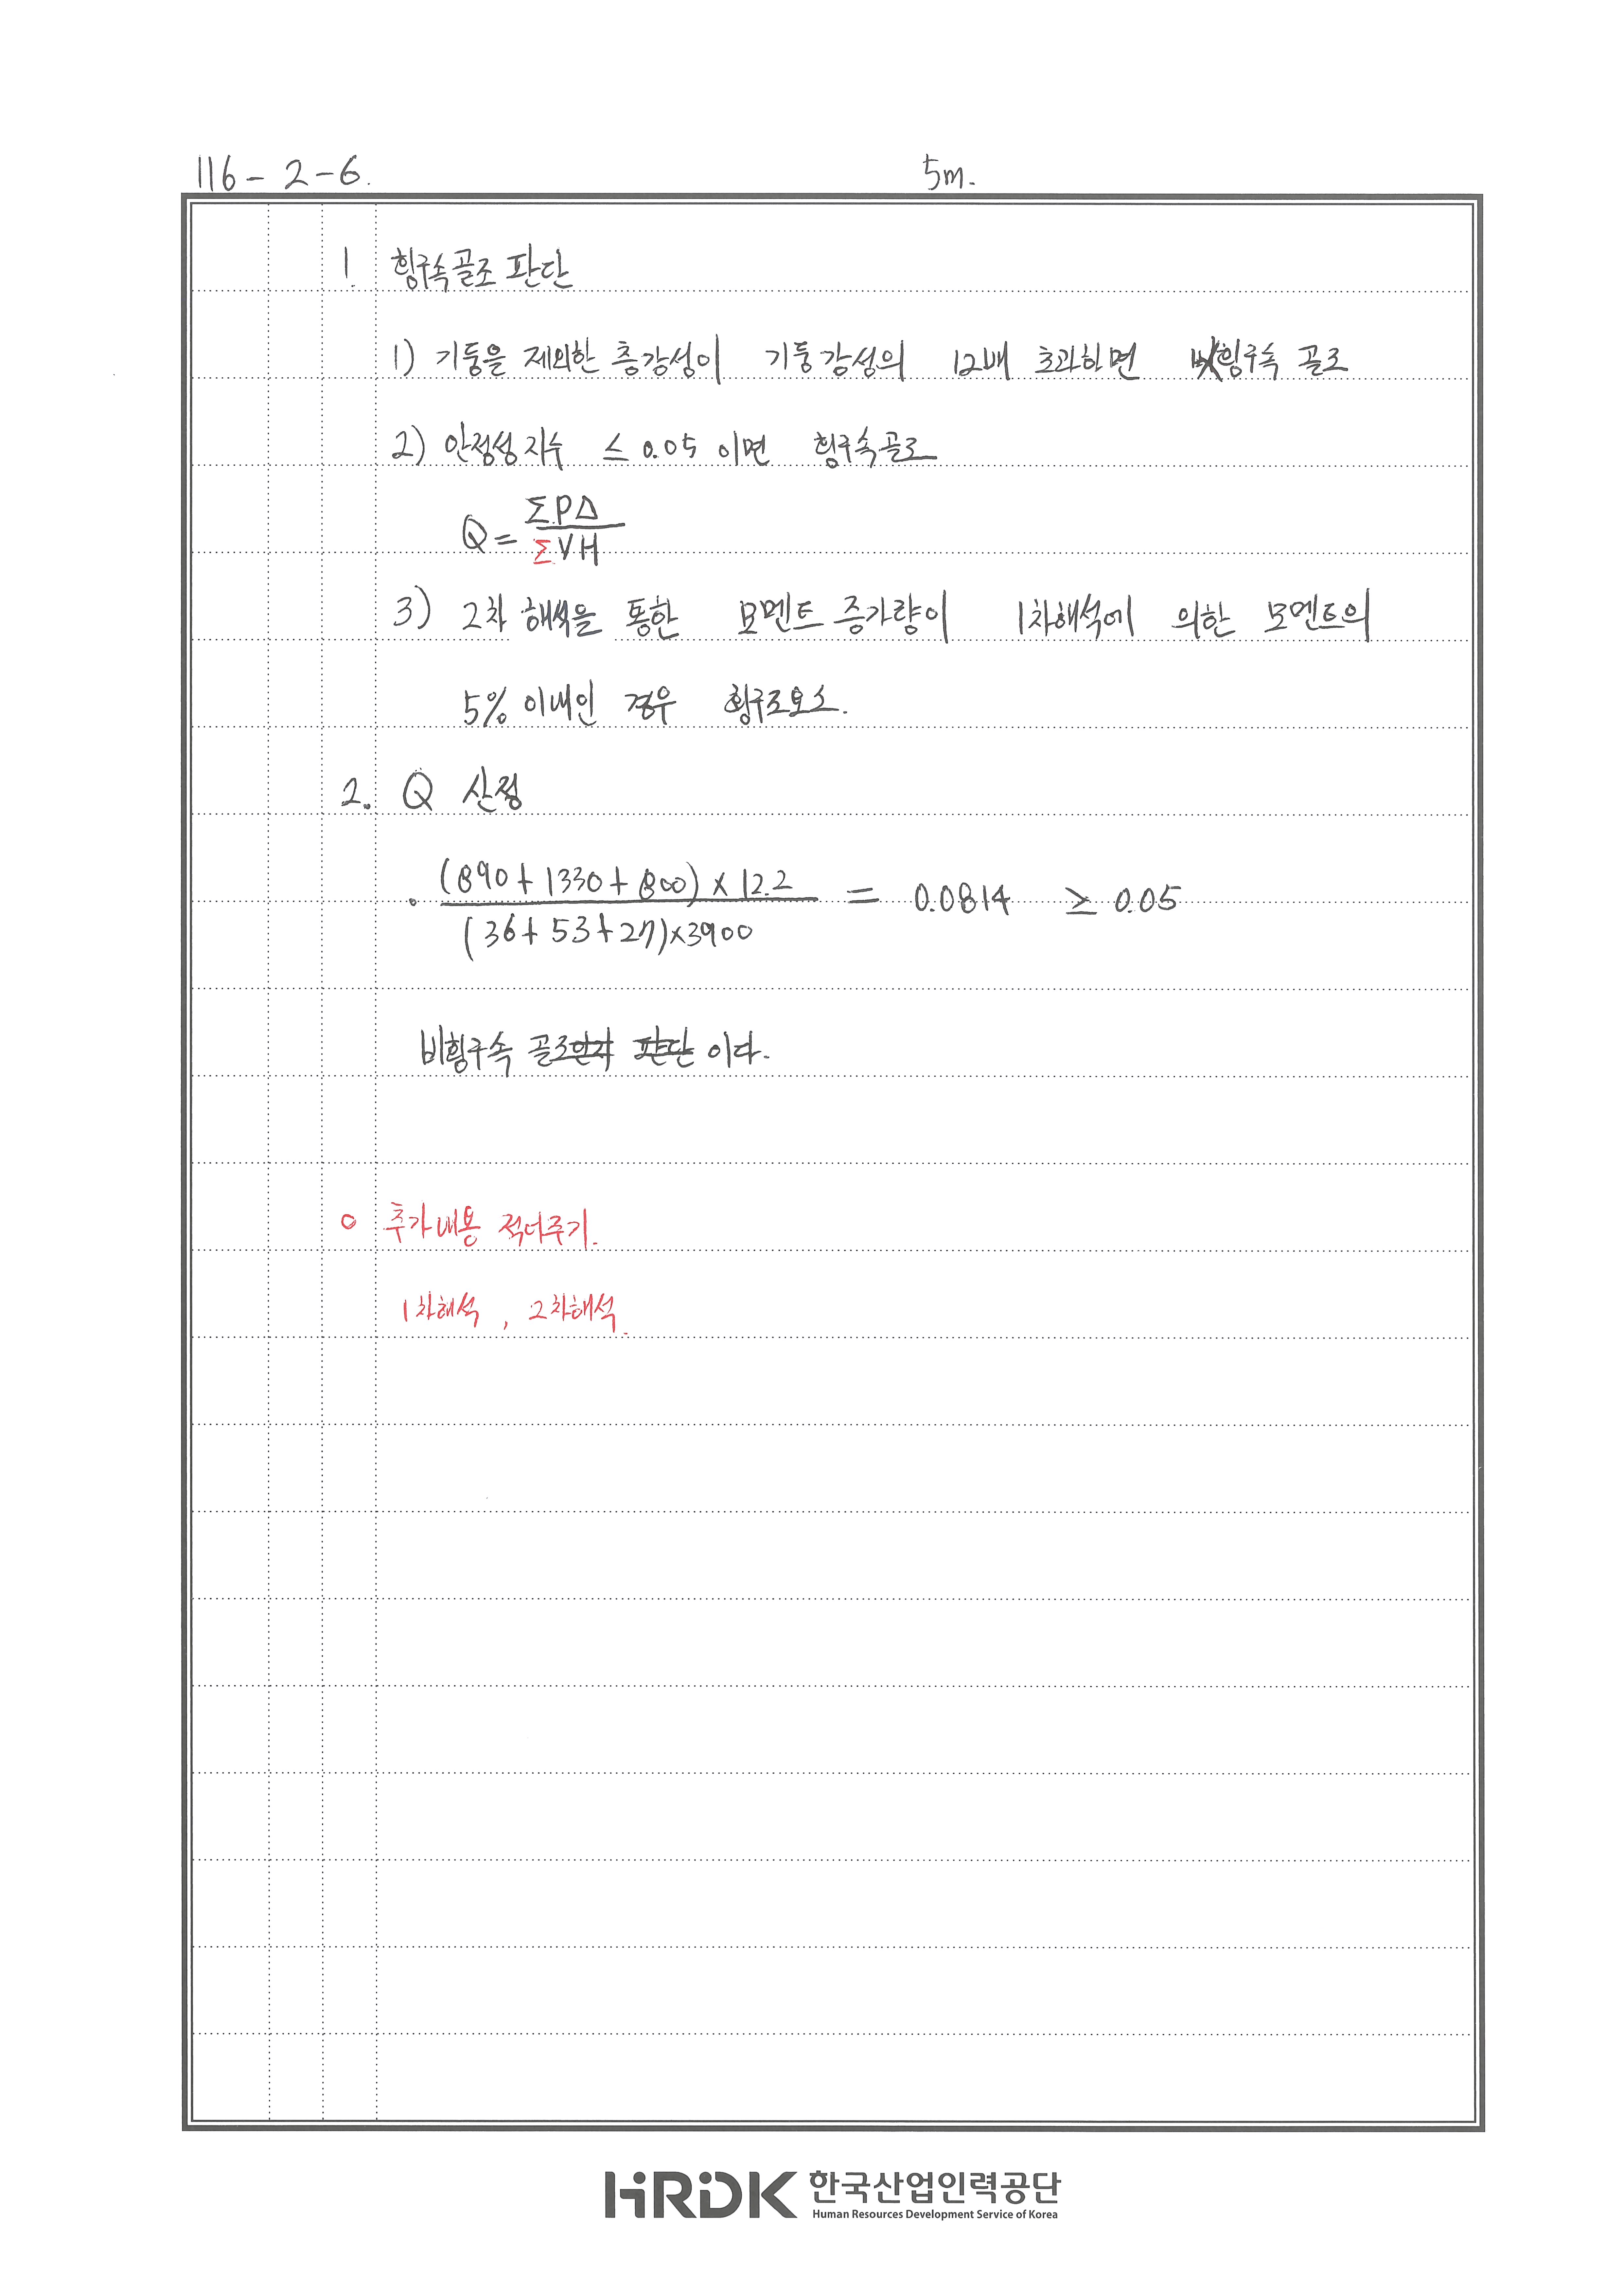 116 - 2 - 6.
5m.
1. 횡구속골조 판단
1) 기둥을 제외한 층강성이 기둥강성의 12배 초과하면 횡구속 골조
2) 안정성지수 ≤ 0.05 이면 횡구속골조
Q = ΣPΔ / ΣVH
3) 2차 해석을 통한 모멘트 증가량이 1차해석에 의한 모멘트의
5% 이내인 경우 횡구조요소.
2. Q 산정
(890 + 1330 + 800) × 12.2 / (36 + 53 + 27) × 3900 = 0.0814 ≥ 0.05
비횡구속 골조인지 판단 이다.
○ 추가내용 적어주기.
1차해석 , 2차해석.
HRDK 한국산업인력공단
Human Resources Development Service of Korea